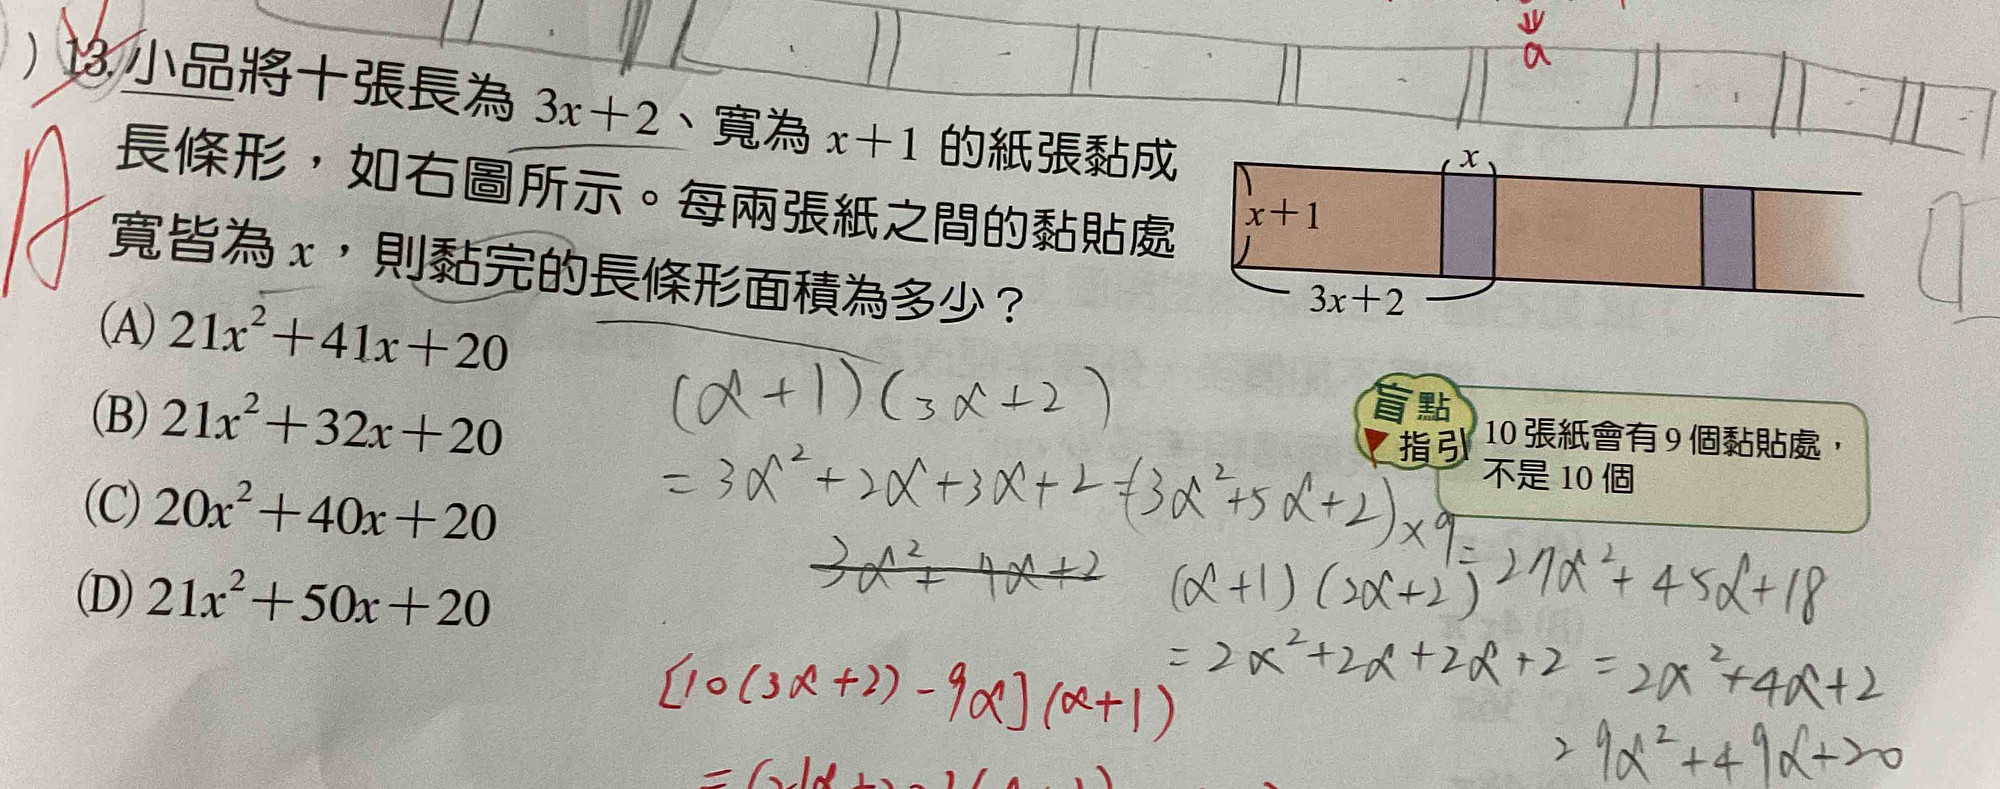 a
)13.小品將十張長為 3x+2、寬為 x+1 的紙張黏成
長條形，如右圖所示。每兩張紙之間的黏貼處
寬皆為 x，則黏完的長條形面積為多少？
(A) 21x²+41x+20
(B) 21x²+32x+20
(C) 20x²+40x+20
(D) 21x²+50x+20
A
x
x+1
3x+2
盲點
指引
10 張紙會有 9 個黏貼處，
不是 10 個
(x+1)(3x+2)
=3x²+2x+3x+2=(3x²+5x+2)×9=27x²+45x+18
3x²+7x+2
(x+1)(2x+2)
=2x²+2x+2x+2=2x²+4x+2
29x²+49x+20
[10(3x+2)-9x](x+1)